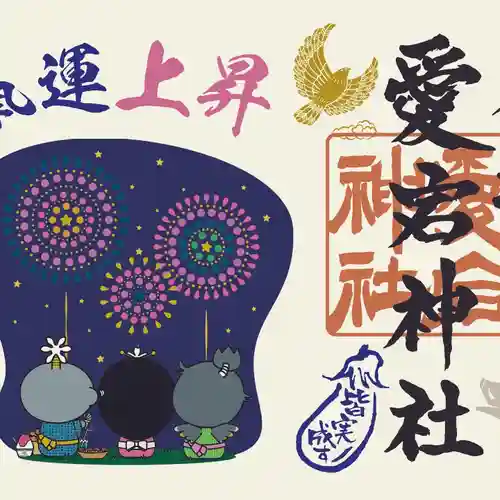 運上昇
愛宕神社
愛宕
神社
皆実
成す